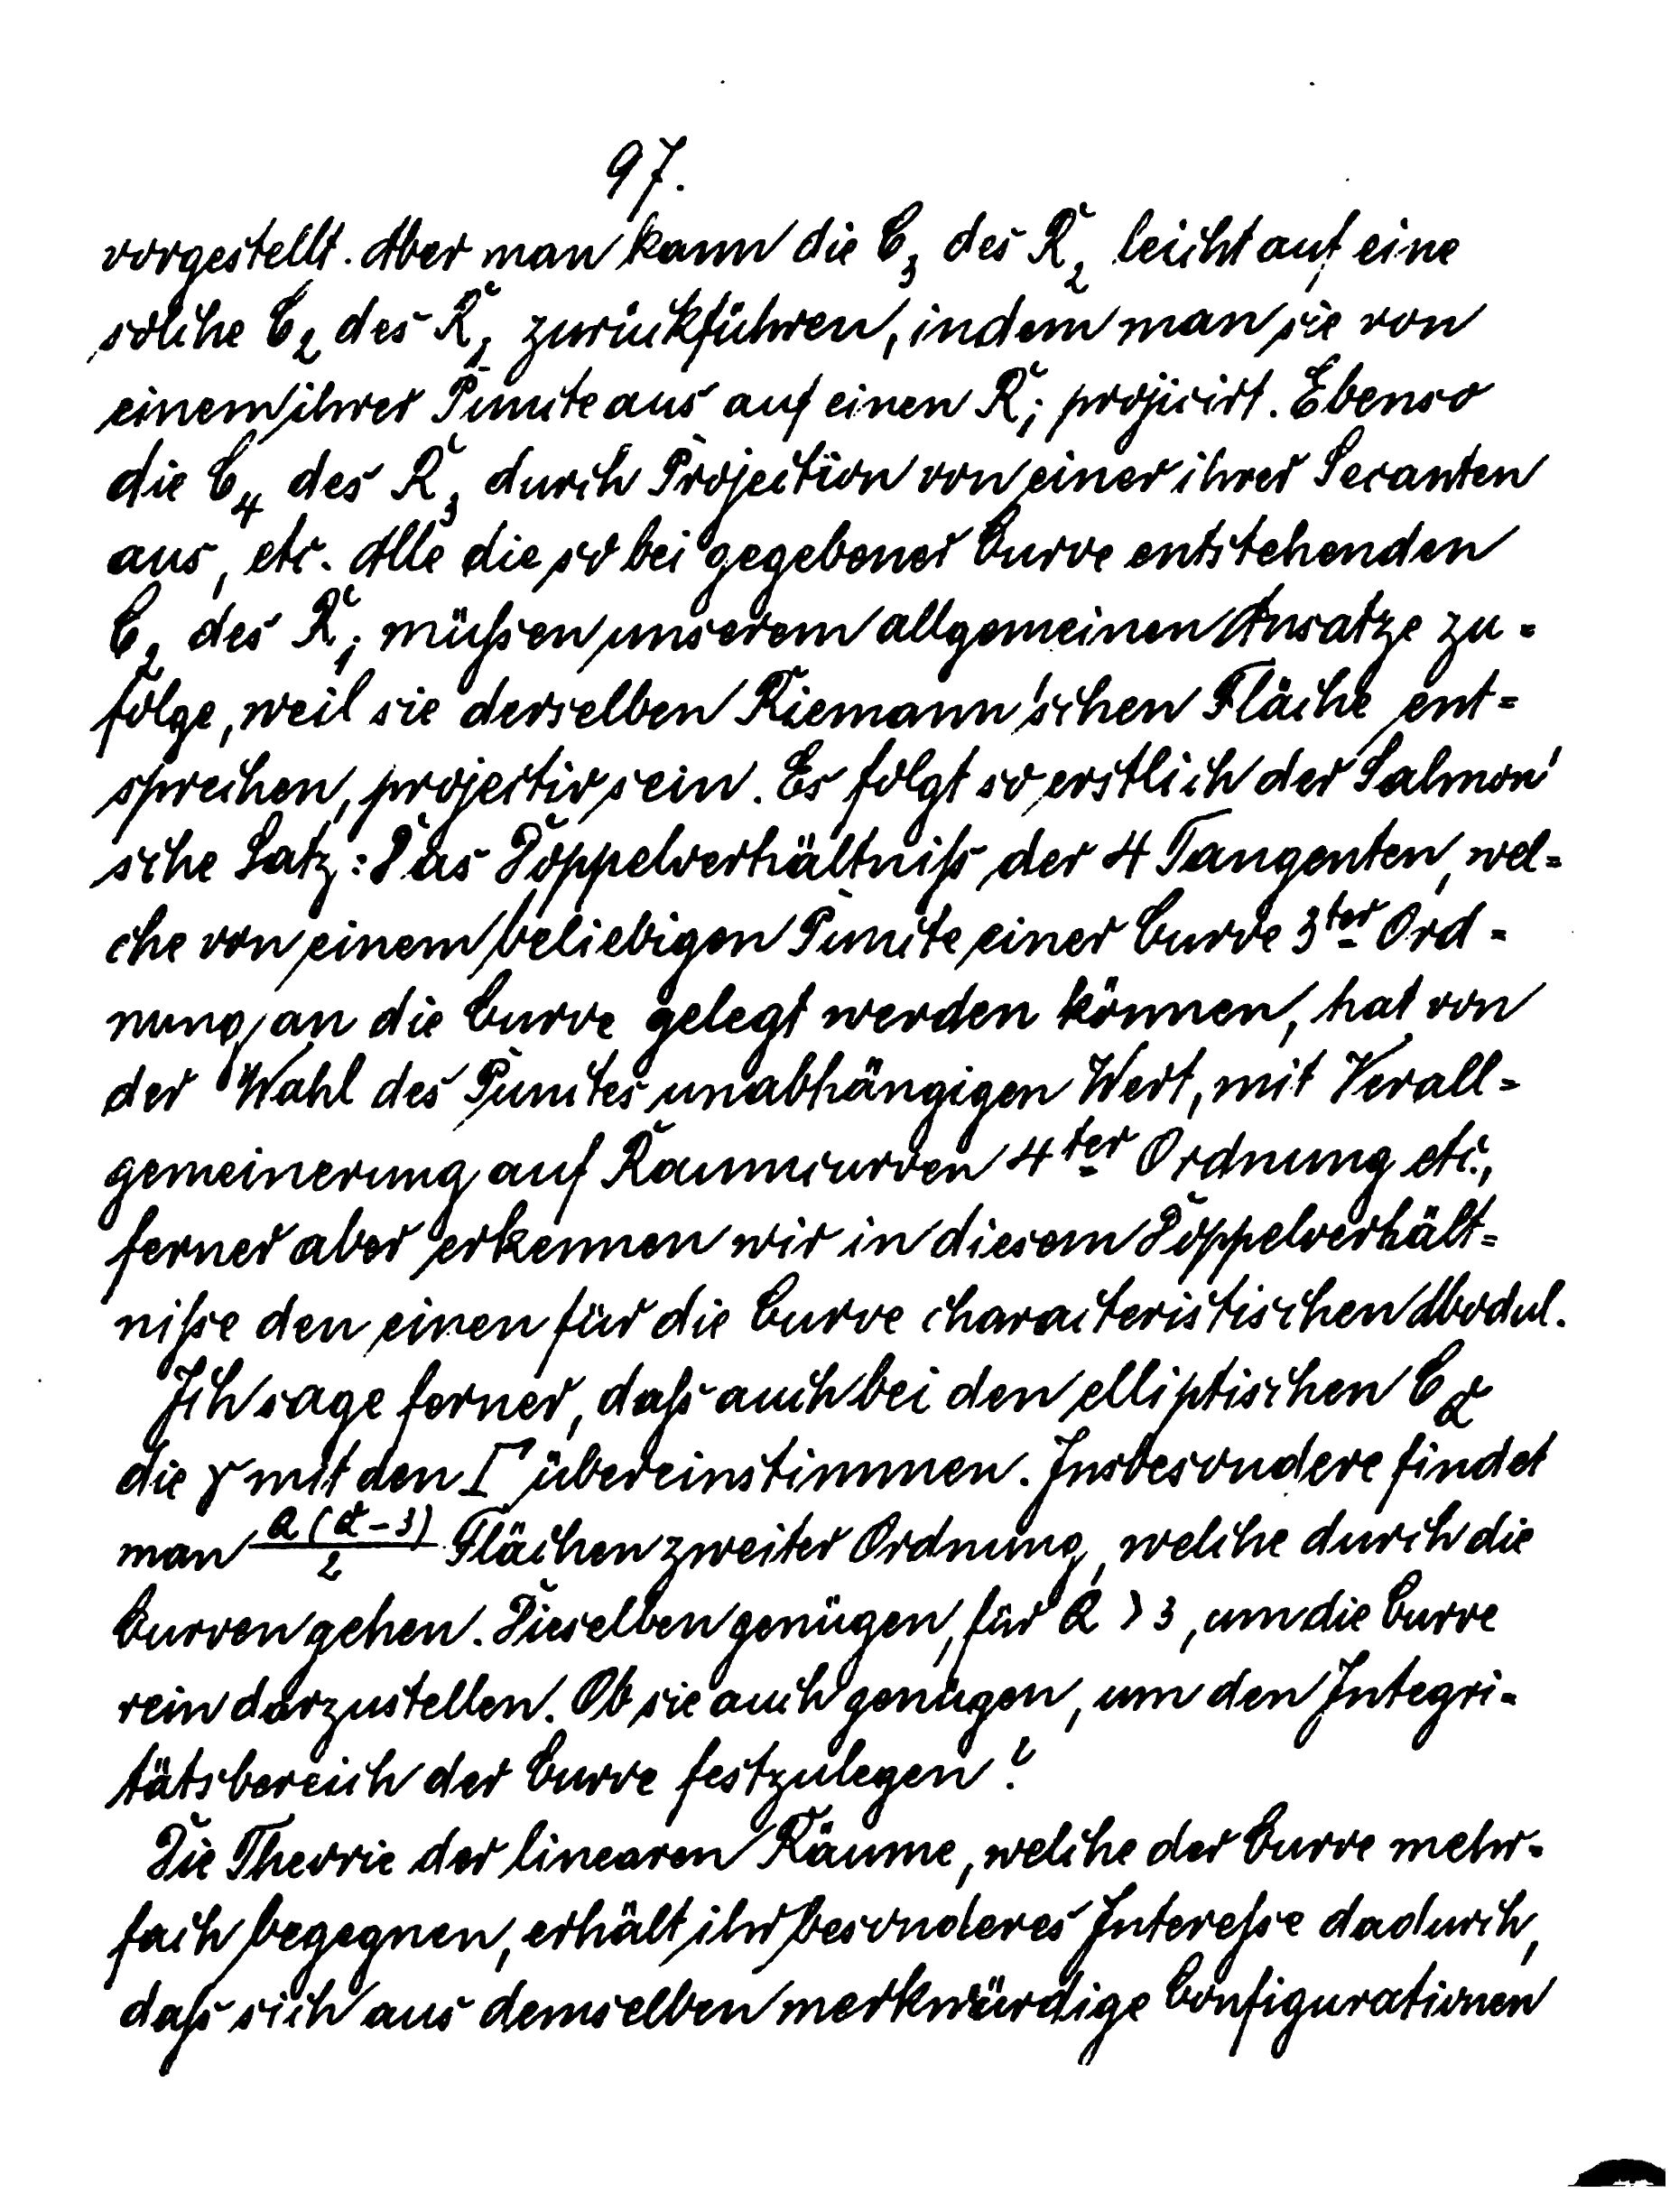 97.
vorgestellt. Aber man kann die C₃ des R₂ leicht auf eine
solche C₂ des R₁ zurückführen, indem man sie von
einem ihrer Puncte aus auf einen R₁ projicirt. Ebenso
die C₄ des R₃ durch Projection von einer ihrer Secanten
aus, etc. Alle die so bei gegebener Curve entstehenden
C₂ des R₁ müßen unserem allgemeinen Ansatze zu-
folge, weil sie derselben Riemann'schen Fläche ent-
sprechen, projectiv sein. Es folgt so erstlich der Salmon'
sche Satz: Das Doppelverhältniß der 4 Tangenten, wel-
che von einem beliebigen Puncte einer Curve 3ter Ord-
nung an die Curve gelegt werden können, hat von
der Wahl des Punctes unabhängigen Wert, mit Verall-
gemeinerung auf Raumcurven 4ter Ordnung etc.,
ferner aber erkennen wir in diesem Doppelverhält-
niße den einen für die Curve characteristischen Modul.
Ich sage ferner, daß auch bei den elliptischen C_α
die γ mit den Γ übereinstimmen. Insbesondere findet
man α(α-3)/2 Flächen zweiter Ordnung, welche durch die
Curven gehen. Dieselben genügen, für α > 3, um die Curve
rein darzustellen. Ob sie auch genügen, um den Integri-
tätsbereich der Curve festzulegen?
Die Theorie der linearen Räume, welche der Curve mehr-
fach begegnen, erhält ihr besonderes Intereße dadurch,
daß sich aus demselben merkwürdige Configurationen